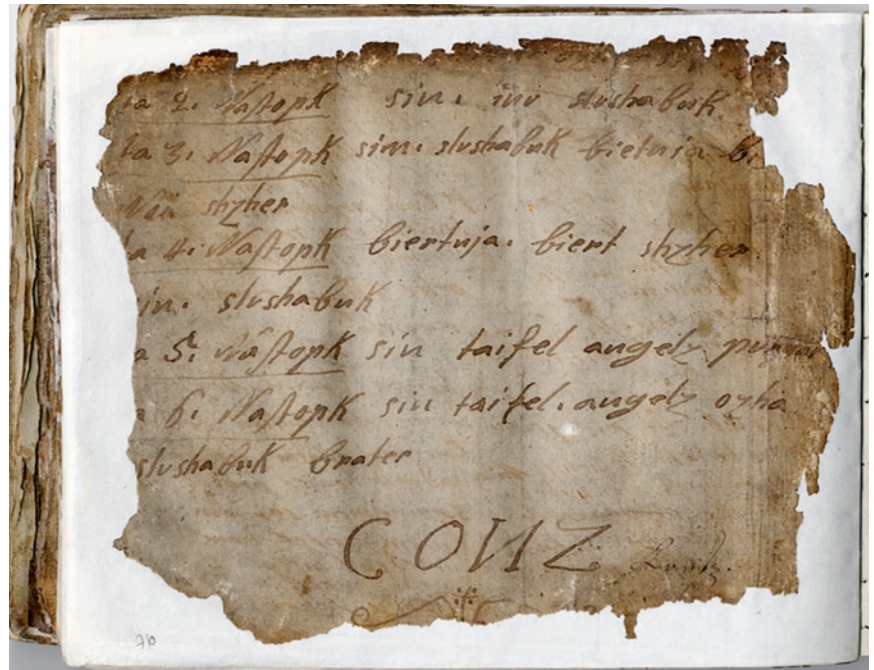 ta 2. Naſtopk sin. inu slushabnk
ta 3. Naſtopk sin. slushabnk bietnja b.
Nai shzher
ta 4. Naſtopk biertnja. biert shzher
sin. slushabnk
a 5. Naſtopk sin taifel angelz
a 6. Naſtopk sin taifel. angelz ozha
slushabnk brater
CONZ
76